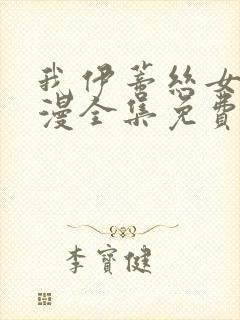 我伊蒂丝女
漫全集免費
李寶健